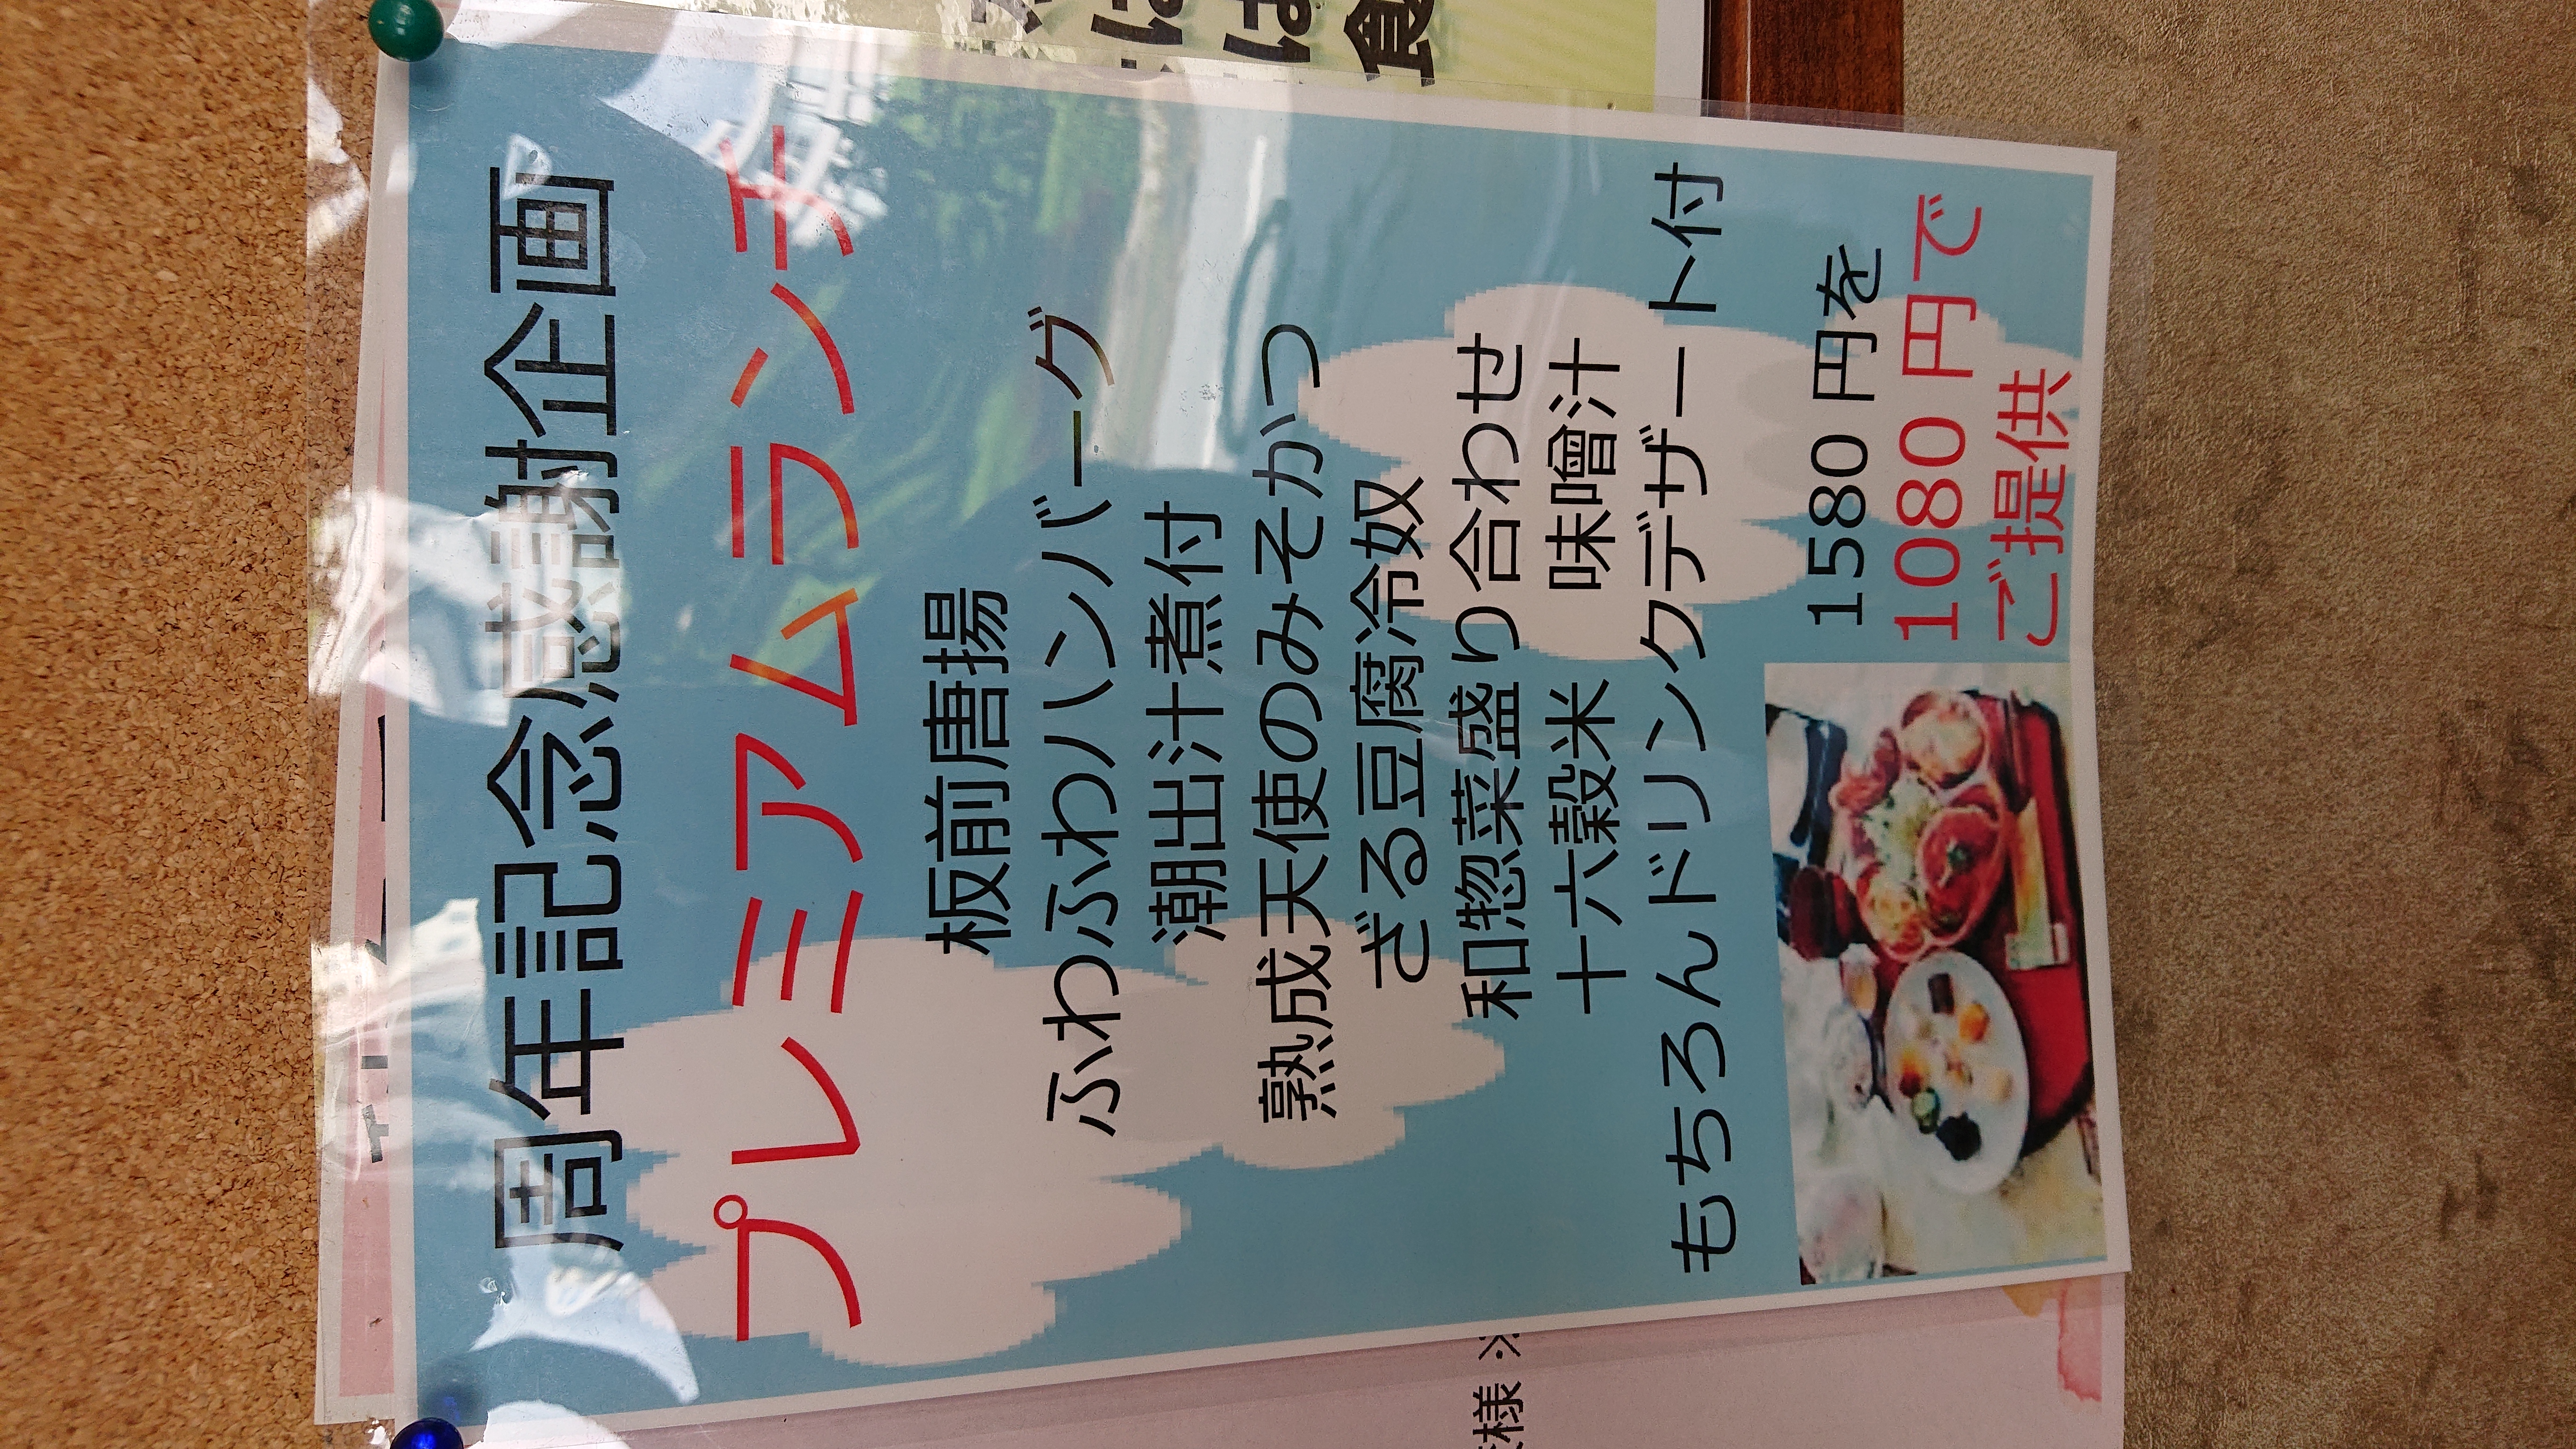 周年記念感謝企画
プレミアムランチ
板前唐揚
ふわふわハンバーグ
潮出汁煮付
熟成天使のみそかつ
ざる豆腐冷奴
和惣菜盛り合わせ
十六穀米 味噌汁
もちろんドリンクデザート付
1580 円を
1080 円で
ご提供
様 ※
は
は
食